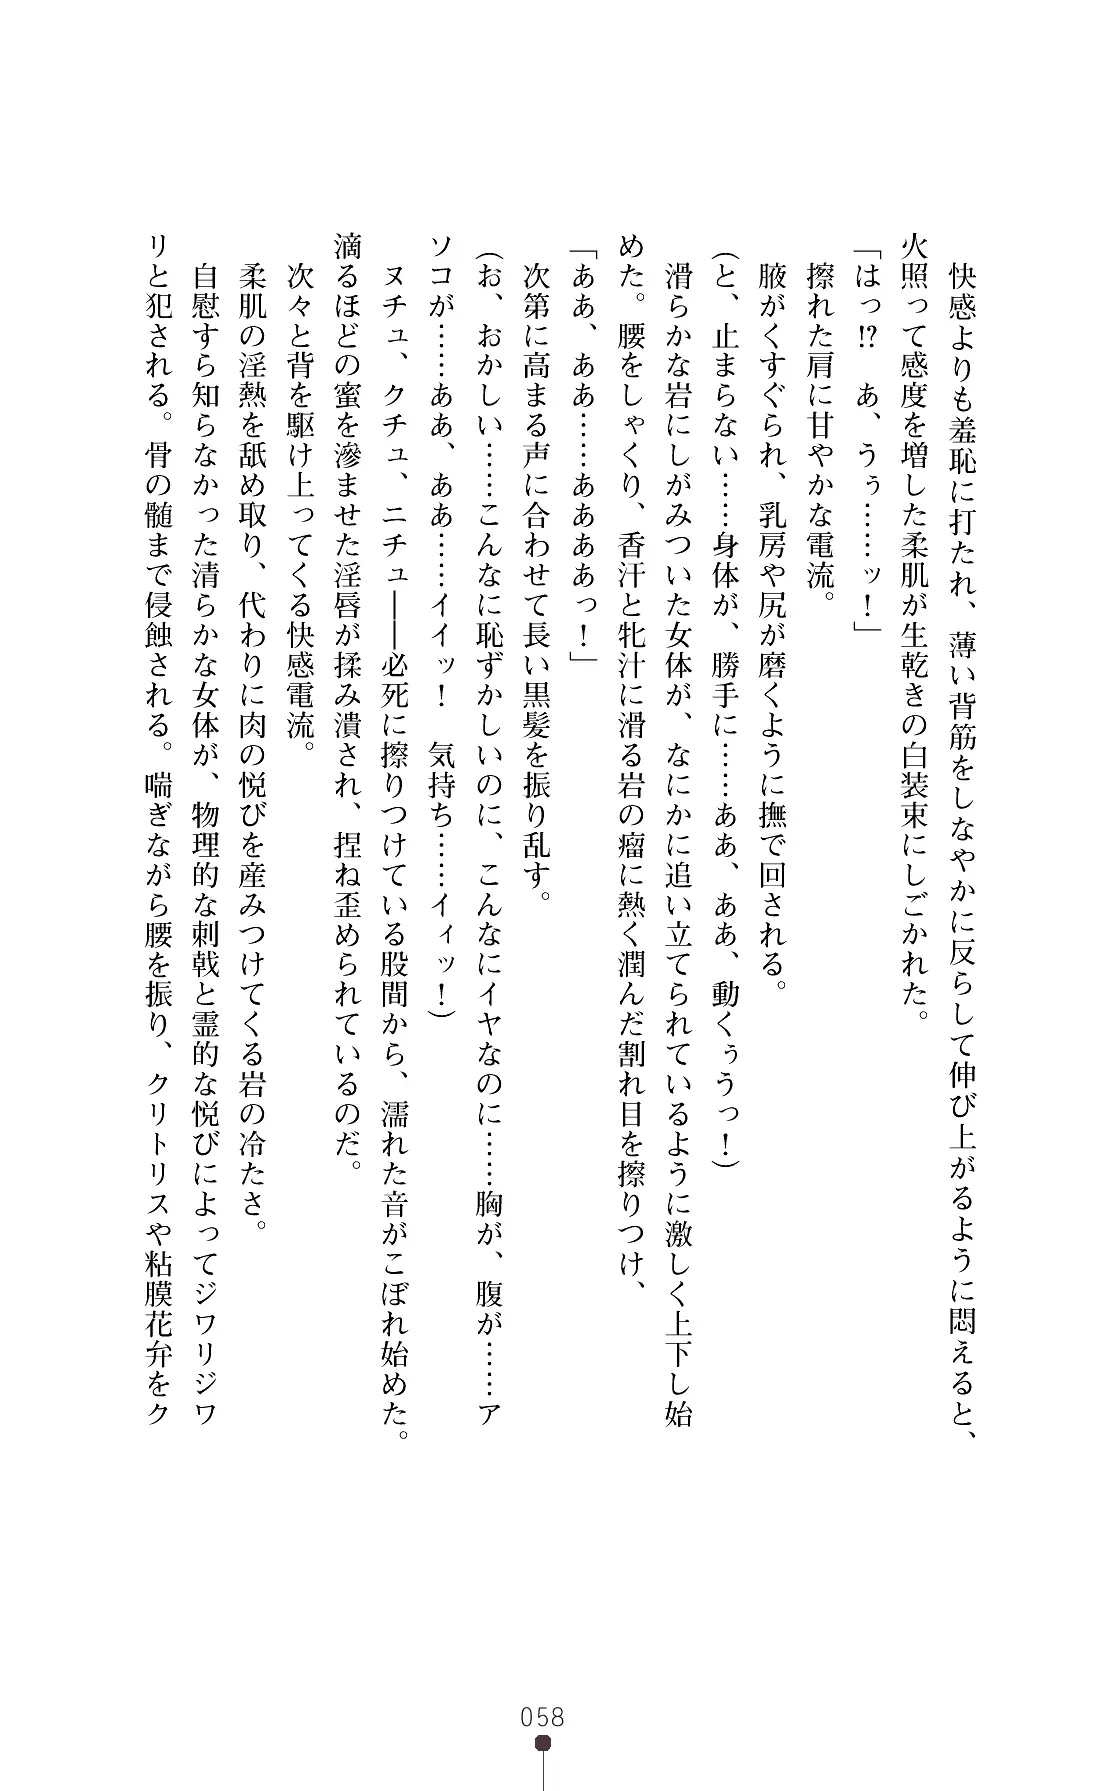 快感よりも羞恥に打たれ、薄い背筋をしなやかに反らして伸び上がるように悶えると、
火照って感度を増した柔肌が生乾きの白装束にしごかれた。
「はっ!?　あ、うぅ……ッ！」
擦れた肩に甘やかな電流。
腋がくすぐられ、乳房や尻が磨くように撫で回される。
（と、止まらない……身体が、勝手に……ああ、ああ、動くぅうっ！）
滑らかな岩にしがみついた女体が、なにかに追い立てられているように激しく上下し始
めた。腰をしゃくり、香汗と牝汁に滑る岩の瘤に熱く潤んだ割れ目を擦りつけ、
「ああ、ああ……ああああっ！」
次第に高まる声に合わせて長い黒髪を振り乱す。
（お、おかしい……こんなに恥ずかしいのに、こんなにイヤなのに……胸が、腹が……ア
ソコが……ああ、ああ……イイッ！　気持ち……イィッ！）
ヌチュ、クチュ、ニチュ――必死に擦りつけている股間から、濡れた音がこぼれ始めた。
滴るほどの蜜を滲ませた淫唇が揉み潰され、捏ね歪められているのだ。
次々と背を駆け上ってくる快感電流。
柔肌の淫熱を舐め取り、代わりに肉の悦びを産みつけてくる岩の冷たさ。
自慰すら知らなかった清らかな女体が、物理的な刺戟と霊的な悦びによってジワリジワ
リと犯される。骨の髄まで侵蝕される。喘ぎながら腰を振り、クリトリスや粘膜花弁をク
058